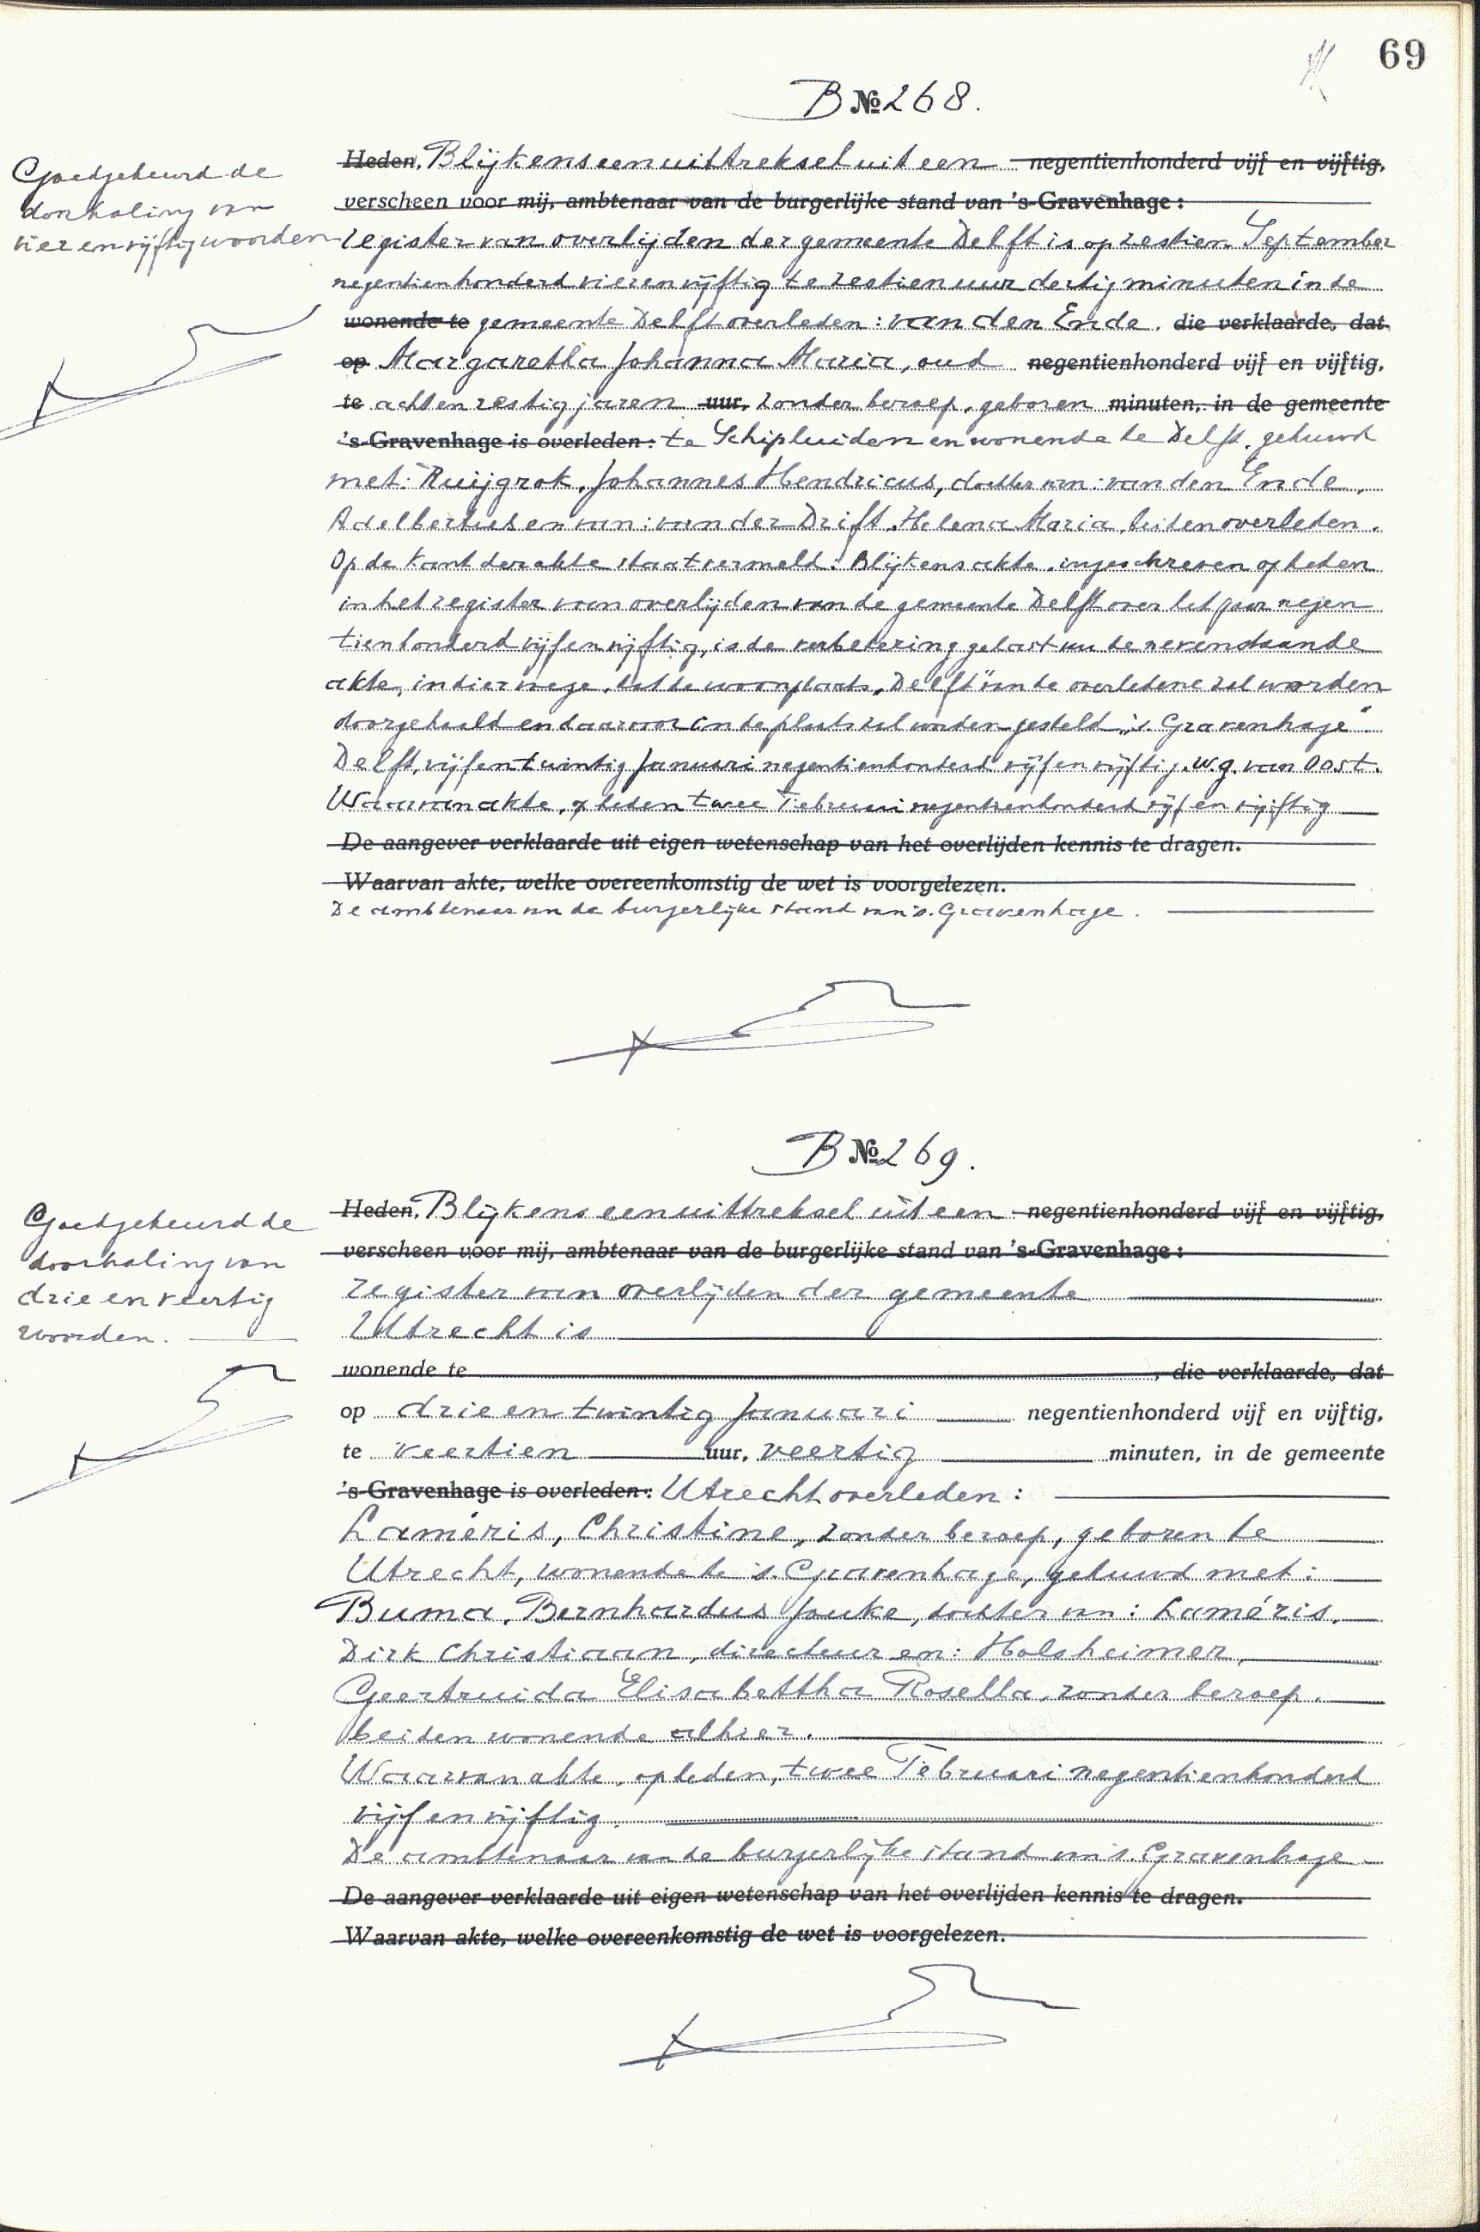 69
B № 268.
Goedgekeurd de
doorhaling van
vier en vijftig woorden
Heden, Blijkens een uittreksel uit een negentienhonderd vijf en vijftig,
verscheen voor mij, ambtenaar van de burgerlijke stand van 's-Gravenhage:
register van overlijden der gemeente Delft is op zestien September
negentienhonderd vier en vijftig te zestien uur dertig minuten in de
wonende te gemeente Delft overleden: van den Ende, die verklaarde, dat
op Margaretha Johanna Maria, oud negentienhonderd vijf en vijftig,
te acht en zestig jaren uur, zonder beroep, geboren minuten, in de gemeente
's-Gravenhage is overleden: te Schipluiden en wonende te Delft, gehuwd
met: Ruijgrok, Johannes Hendricus, dochter van: van den Ende,
Adelbertus en van: van der Drift, Helena Maria, beiden overleden.
Op de kant der akte staat vermeld: Blijkens akte, ingeschreven op heden
in het register van overlijden van de gemeente Delft over het jaar negen
tienhonderd vijf en vijftig, is de verbetering gelast van de nevenstaande
akte, in dier voege, dat de woonplaats "Delft" van de overledene zal worden
doorgehaald en daarvoor in de plaats zal worden gesteld "'s-Gravenhage".
Delft, vijf en twintig Januari negentienhonderd vijf en vijftig. w.g. van Oost.
Waarvan akte, op heden twee Februari negentienhonderd vijf en vijftig
De aangever verklaarde uit eigen wetenschap van het overlijden kennis te dragen.
Waarvan akte, welke overeenkomstig de wet is voorgelezen.
De ambtenaar van de burgerlijke stand van 's-Gravenhage.
B № 269.
Goedgekeurd de
doorhaling van
drie en veertig
woorden.
Heden, Blijkens een uittreksel uit een negentienhonderd vijf en vijftig,
verscheen voor mij, ambtenaar van de burgerlijke stand van 's-Gravenhage:
register van overlijden der gemeente
Utrecht is
wonende te , die verklaarde, dat
op drie en twintig Januari negentienhonderd vijf en vijftig,
te veertien uur, veertig minuten, in de gemeente
's-Gravenhage is overleden: Utrecht overleden:
Laméris, Christine, zonder beroep, geboren te
Utrecht, wonende te 's-Gravenhage, gehuwd met:
Buma, Bernhardus Jouke, dochter van: Laméris,
Dirk Christiaan, directeur en: Holsheimer,
Geertruida Elisabettha Rosella, zonder beroep,
beiden wonende alhier.
Waarvan akte, op heden, twee Februari negentienhonderd
vijf en vijftig.
De ambtenaar van de burgerlijke stand van 's-Gravenhage
De aangever verklaarde uit eigen wetenschap van het overlijden kennis te dragen.
Waarvan akte, welke overeenkomstig de wet is voorgelezen.